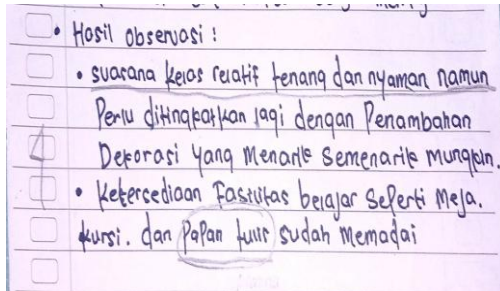 • Hasil observasi :
• suasana kelas relatif tenang dan nyaman namun
Perlu ditingkatkan lagi dengan Penambahan
Dekorasi yang Menarik Semenarik mungkin.
• Ketersediaan Fasilitas belajar Seperti Meja.
kursi. dan Papan tulis sudah Memadai